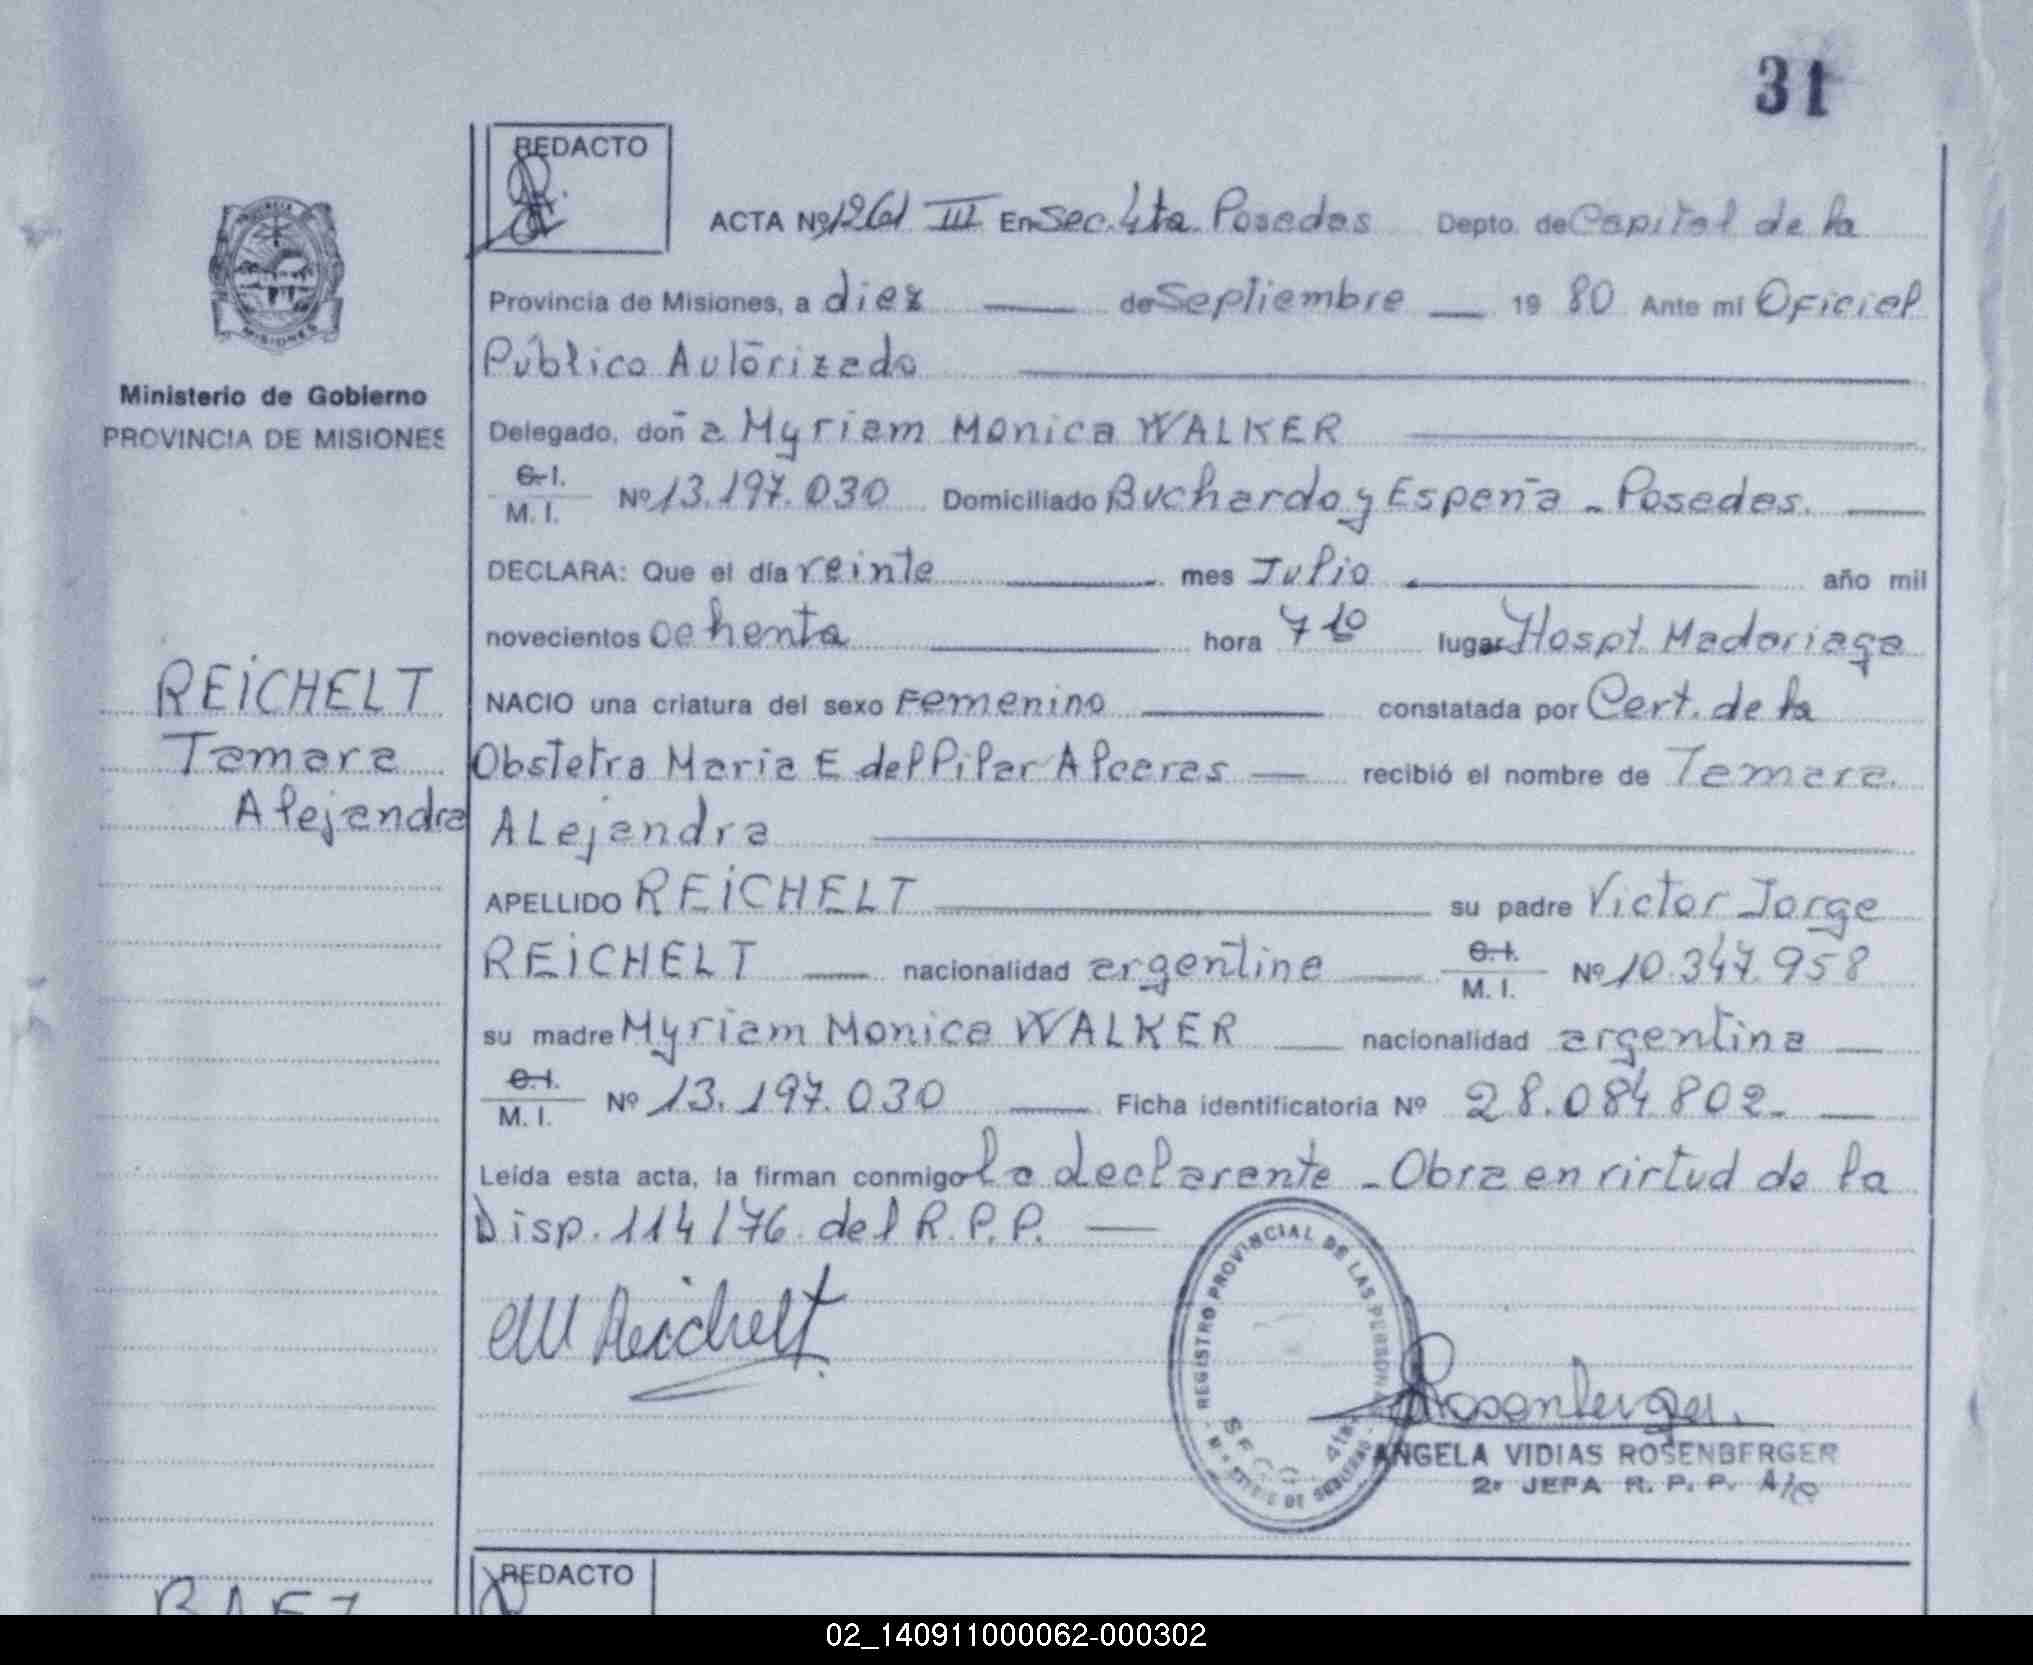 31
REDACTO
ACTA Nº 1261 III En Sec. 4ta. Posadas Depto. de Capital de la
Provincia de Misiones, a diez de Septiembre 19 80 Ante mi Oficial
Público Autorizado
Ministerio de Gobierno
PROVINCIA DE MISIONES
Delegado, doña Myriam Monica WALKER
C. I.
M. I. Nº 13.197.030 Domiciliado Buchardo y España - Posadas.
DECLARA: Que el día veinte mes Julio año mil
novecientos ochenta hora 7 10 lugar Hospt. Madariaga
REICHELT
Tamara
Alejandra
NACIO una criatura del sexo Femenino constatada por Cert. de la
Obstetra Maria E del Pilar Alceras recibió el nombre de Tamara
ALejandra
APELLIDO REICHELT su padre Victor Jorge
REICHELT nacionalidad argentina C. I.
M. I. Nº 10.347.958
su madre Myriam Monica WALKER nacionalidad argentina
C. I.
M. I. Nº 13.197.030 Ficha identificatoria Nº 28.084.802.
Leída esta acta, la firman conmigo la declarante - Obra en virtud de la
Disp. 114/76 del R.P.P.
REGISTRO PROVINCIAL DE LAS PERSONAS
Reichelt
Rosenberger
ANGELA VIDIAS ROSENBERGER
2º JEFA R. P. P. A/C
REDACTO
BAEZ
02_140911000062-000302